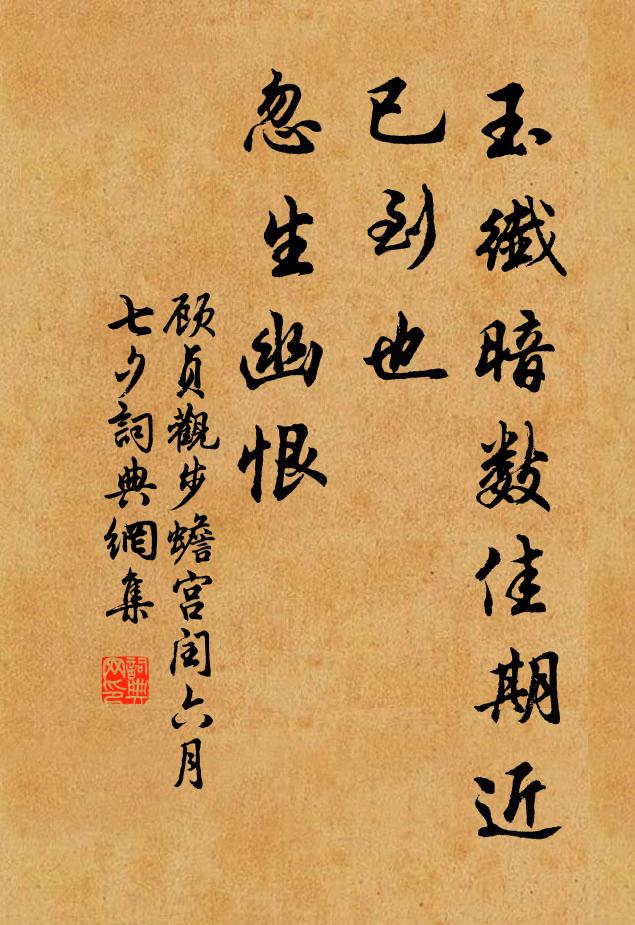 玉纖暗數佳期近
已到也
忽生幽恨
顾貞觀步蟾宫闰六月
七夕詞典網集
詞典网印